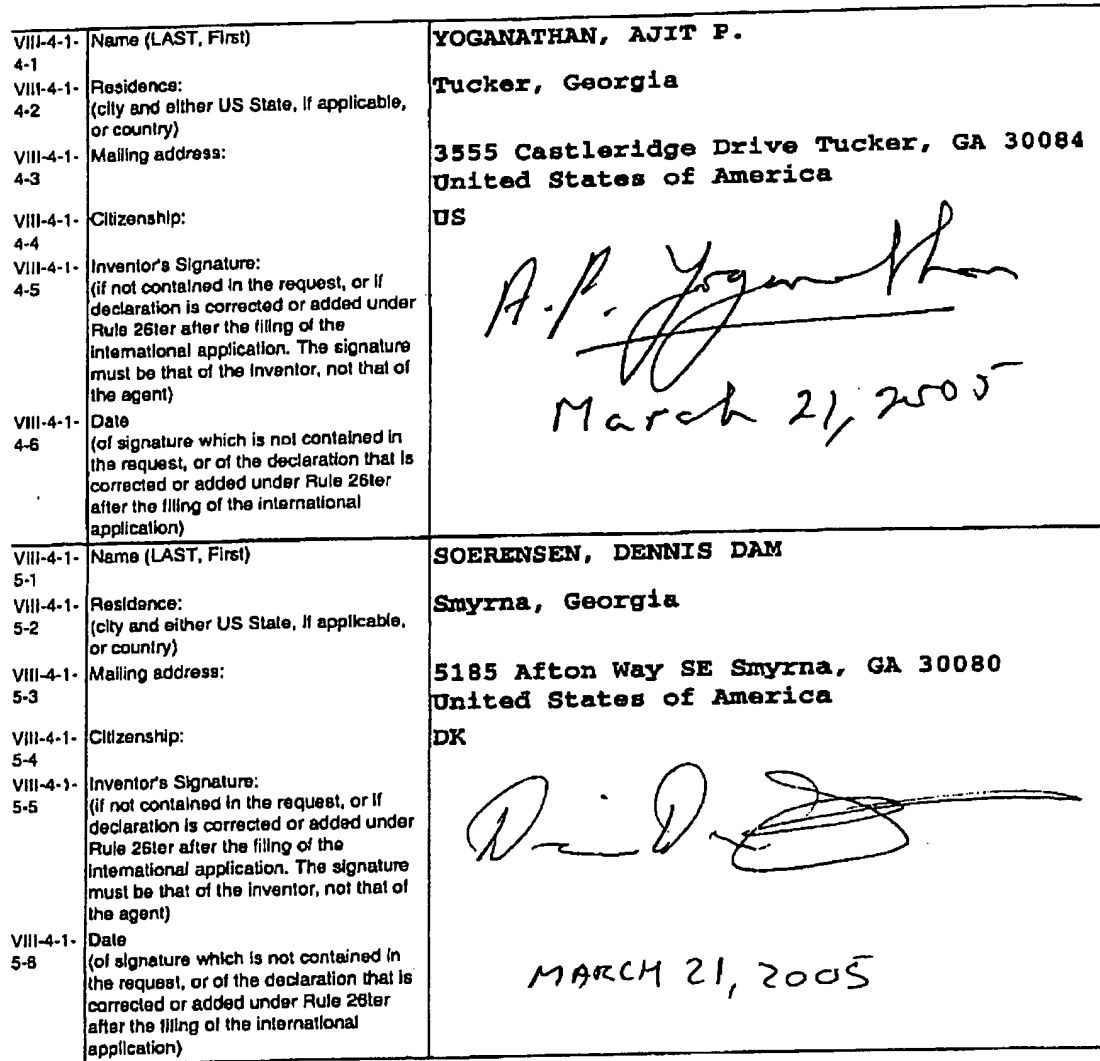 VIII-4-1- Name (LAST, First) YOGANATHAN, AJIT P.
4-1
VIII-4-1- Residence: Tucker, Georgia
4-2 (city and either US State, if applicable,
or country)
VIII-4-1- Mailing address: 3555 Castleridge Drive Tucker, GA 30084
4-3 United States of America
VIII-4-1- Citizenship: US
4-4
VIII-4-1- Inventor's Signature:
4-5 (if not contained in the request, or if
declaration is corrected or added under
Rule 26ter after the filing of the
international application. The signature
must be that of the inventor, not that of
the agent)
A.P. Yoganathan
VIII-4-1- Date March 21, 2005
4-6 (of signature which is not contained in
the request, or of the declaration that is
corrected or added under Rule 26ter
after the filing of the international
application)
VIII-4-1- Name (LAST, First) SOERENSEN, DENNIS DAM
5-1
VIII-4-1- Residence: Smyrna, Georgia
5-2 (city and either US State, if applicable,
or country)
VIII-4-1- Mailing address: 5185 Afton Way SE Smyrna, GA 30080
5-3 United States of America
VIII-4-1- Citizenship: DK
5-4
VIII-4-1- Inventor's Signature:
5-5 (if not contained in the request, or if
declaration is corrected or added under
Rule 26ter after the filing of the
international application. The signature
must be that of the inventor, not that of
the agent)
VIII-4-1- Date
5-6 (of signature which is not contained in MARCH 21, 2005
the request, or of the declaration that is
corrected or added under Rule 26ter
after the filing of the international
application)